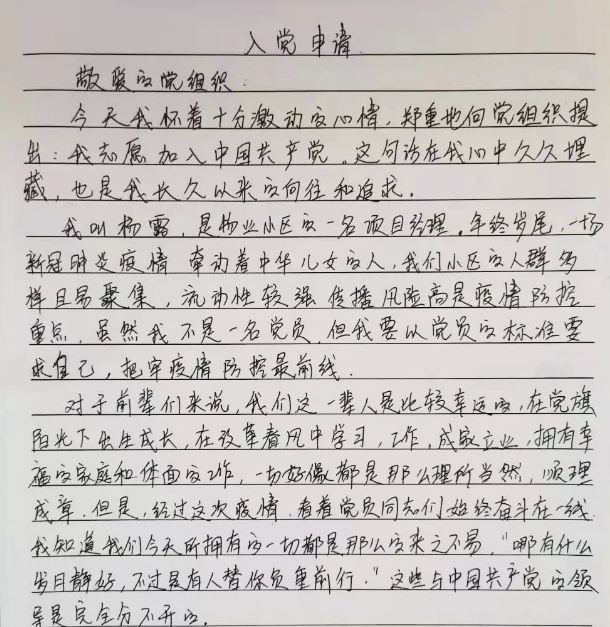 入党申请
敬爱的党组织：
今天我怀着十分激动的心情，郑重地向党组织提
出：我志愿加入中国共产党。这句话在我心中久久埋
藏，也是我长久以来的向往和追求。
我叫杨露，是物业小区的一名项目经理。年终岁尾，一场
新冠肺炎疫情 牵动着中华儿女的人，我们小区的人群多
样且易聚集，流动性较强 传播风险高是疫情防控
重点，虽然我不是一名党员，但我要以党员的标准要
求自己，把牢疫情防控最前线.
对于前辈们来说，我们这一辈人是比较幸运的，在党旗
阳光下出生成长，在改革春风中学习，工作，成家立业，拥有幸
福的家庭和体面的工作，一切好像都是那么理所当然，顺理
成章.但是，经过这次疫情，看着党员同志们始终奋斗在一线.
我知道我们今天所拥有的一切都是那么的来之不易，"哪有什么
岁月静好，不过是有人替你负重前行."这些与中国共产党的领
导是完全分不开的.